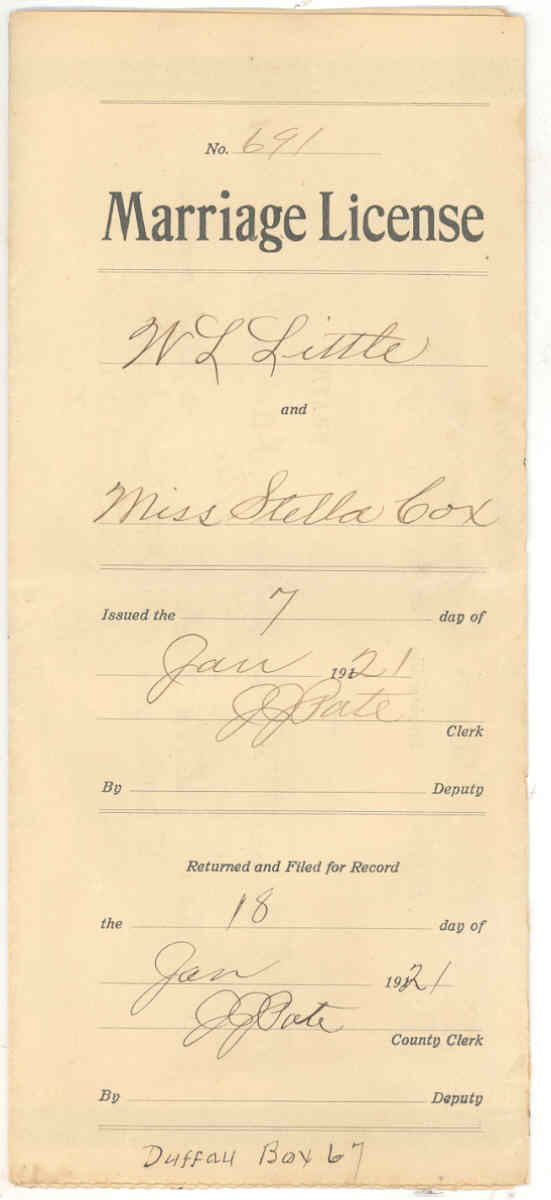 No. 691
Marriage License
W L Little
and
Miss Stella Cox
Issued the 7 day of
Jan 1921
J J Pate
Clerk
By Deputy
Returned and Filed for Record
the 18 day of
Jan 1921
J J Pate
County Clerk
By Deputy
Duffau Box 67